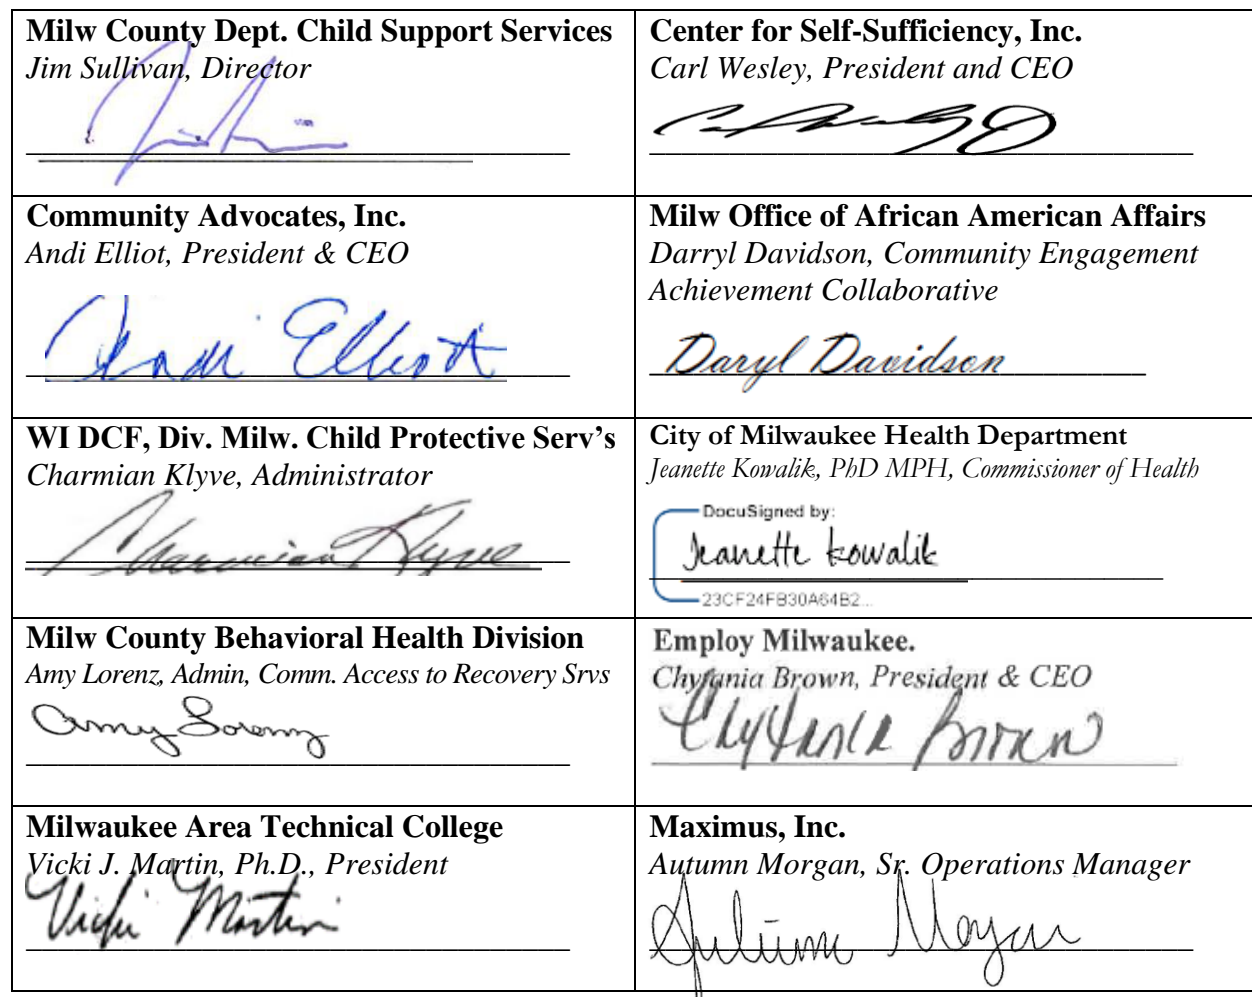 Milw County Dept. Child Support Services
Jim Sullivan, Director
Center for Self-Sufficiency, Inc.
Carl Wesley, President and CEO
Community Advocates, Inc.
Andi Elliot, President & CEO
Andi Elliott
Milw Office of African American Affairs
Darryl Davidson, Community Engagement
Achievement Collaborative
Daryl Davidson
WI DCF, Div. Milw. Child Protective Serv's
Charmian Klyve, Administrator
Charmian Klyve
City of Milwaukee Health Department
Jeanette Kowalik, PhD MPH, Commissioner of Health
DocuSigned by:
Jeanette Kowalik
23CF24FB30A64B2...
Milw County Behavioral Health Division
Amy Lorenz, Admin, Comm. Access to Recovery Srvs
Amy Lorenz
Employ Milwaukee.
Chytania Brown, President & CEO
Chytania Brown
Milwaukee Area Technical College
Vicki J. Martin, Ph.D., President
Vicki Martin
Maximus, Inc.
Autumn Morgan, Sr. Operations Manager
Autumn Morgan